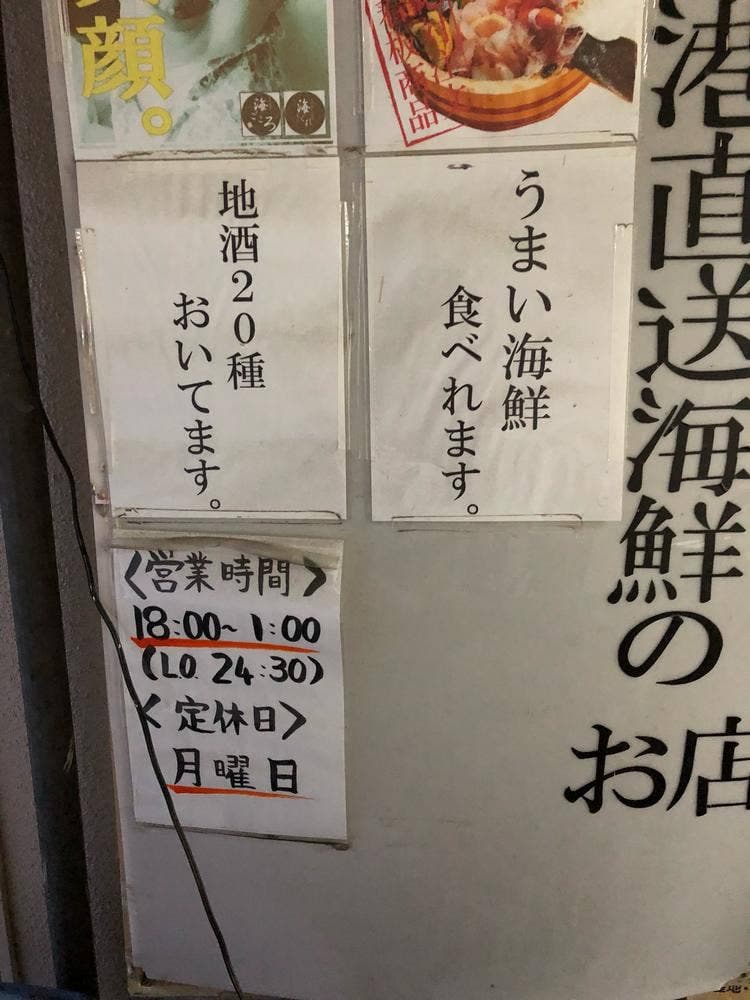 港直送海鮮の
お店
看板商品
うまい海鮮
食べれます。
顔。
海ごころ
地酒20種
おいてます。
〈営業時間〉
18:00~1:00
(L.O. 24:30)
〈定休日〉
月曜日